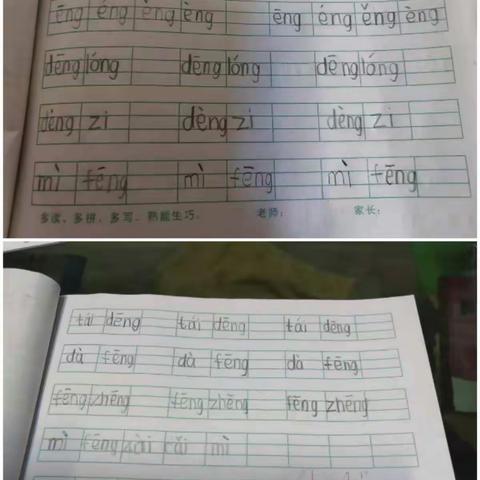 ēng éng ěng èng ēng éng ěng èng
dēng lóng dēng lóng dēng lóng
dèng zi dèng zi dèng zi
mì fēng mì fēng mì fēng
多读、多拼、多写、熟能生巧。 老师： 家长：
tái dēng tái dēng tái dēng
dà fēng dà fēng dà fēng
fēng zhēng fēng zhēng fēng zhēng
mì fēng cǎi mì